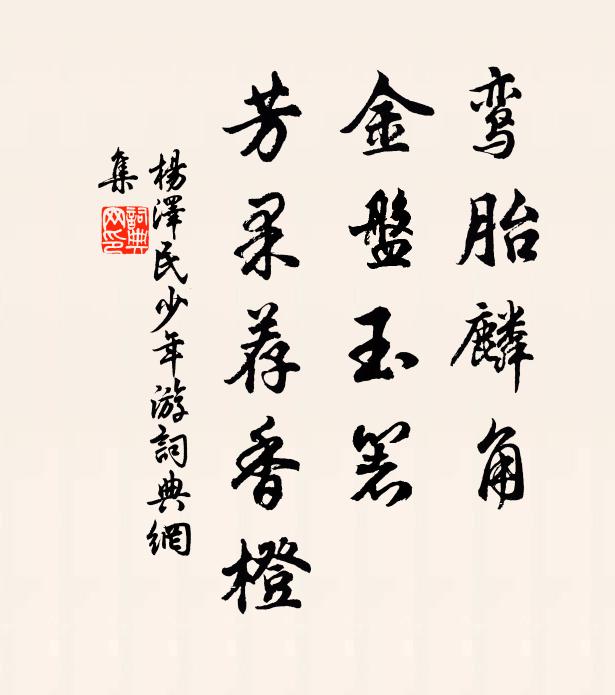 鸾胎麟角
金盤玉箸
芳果荐香橙
楊澤民少年游詞典網
集
詞典
网印